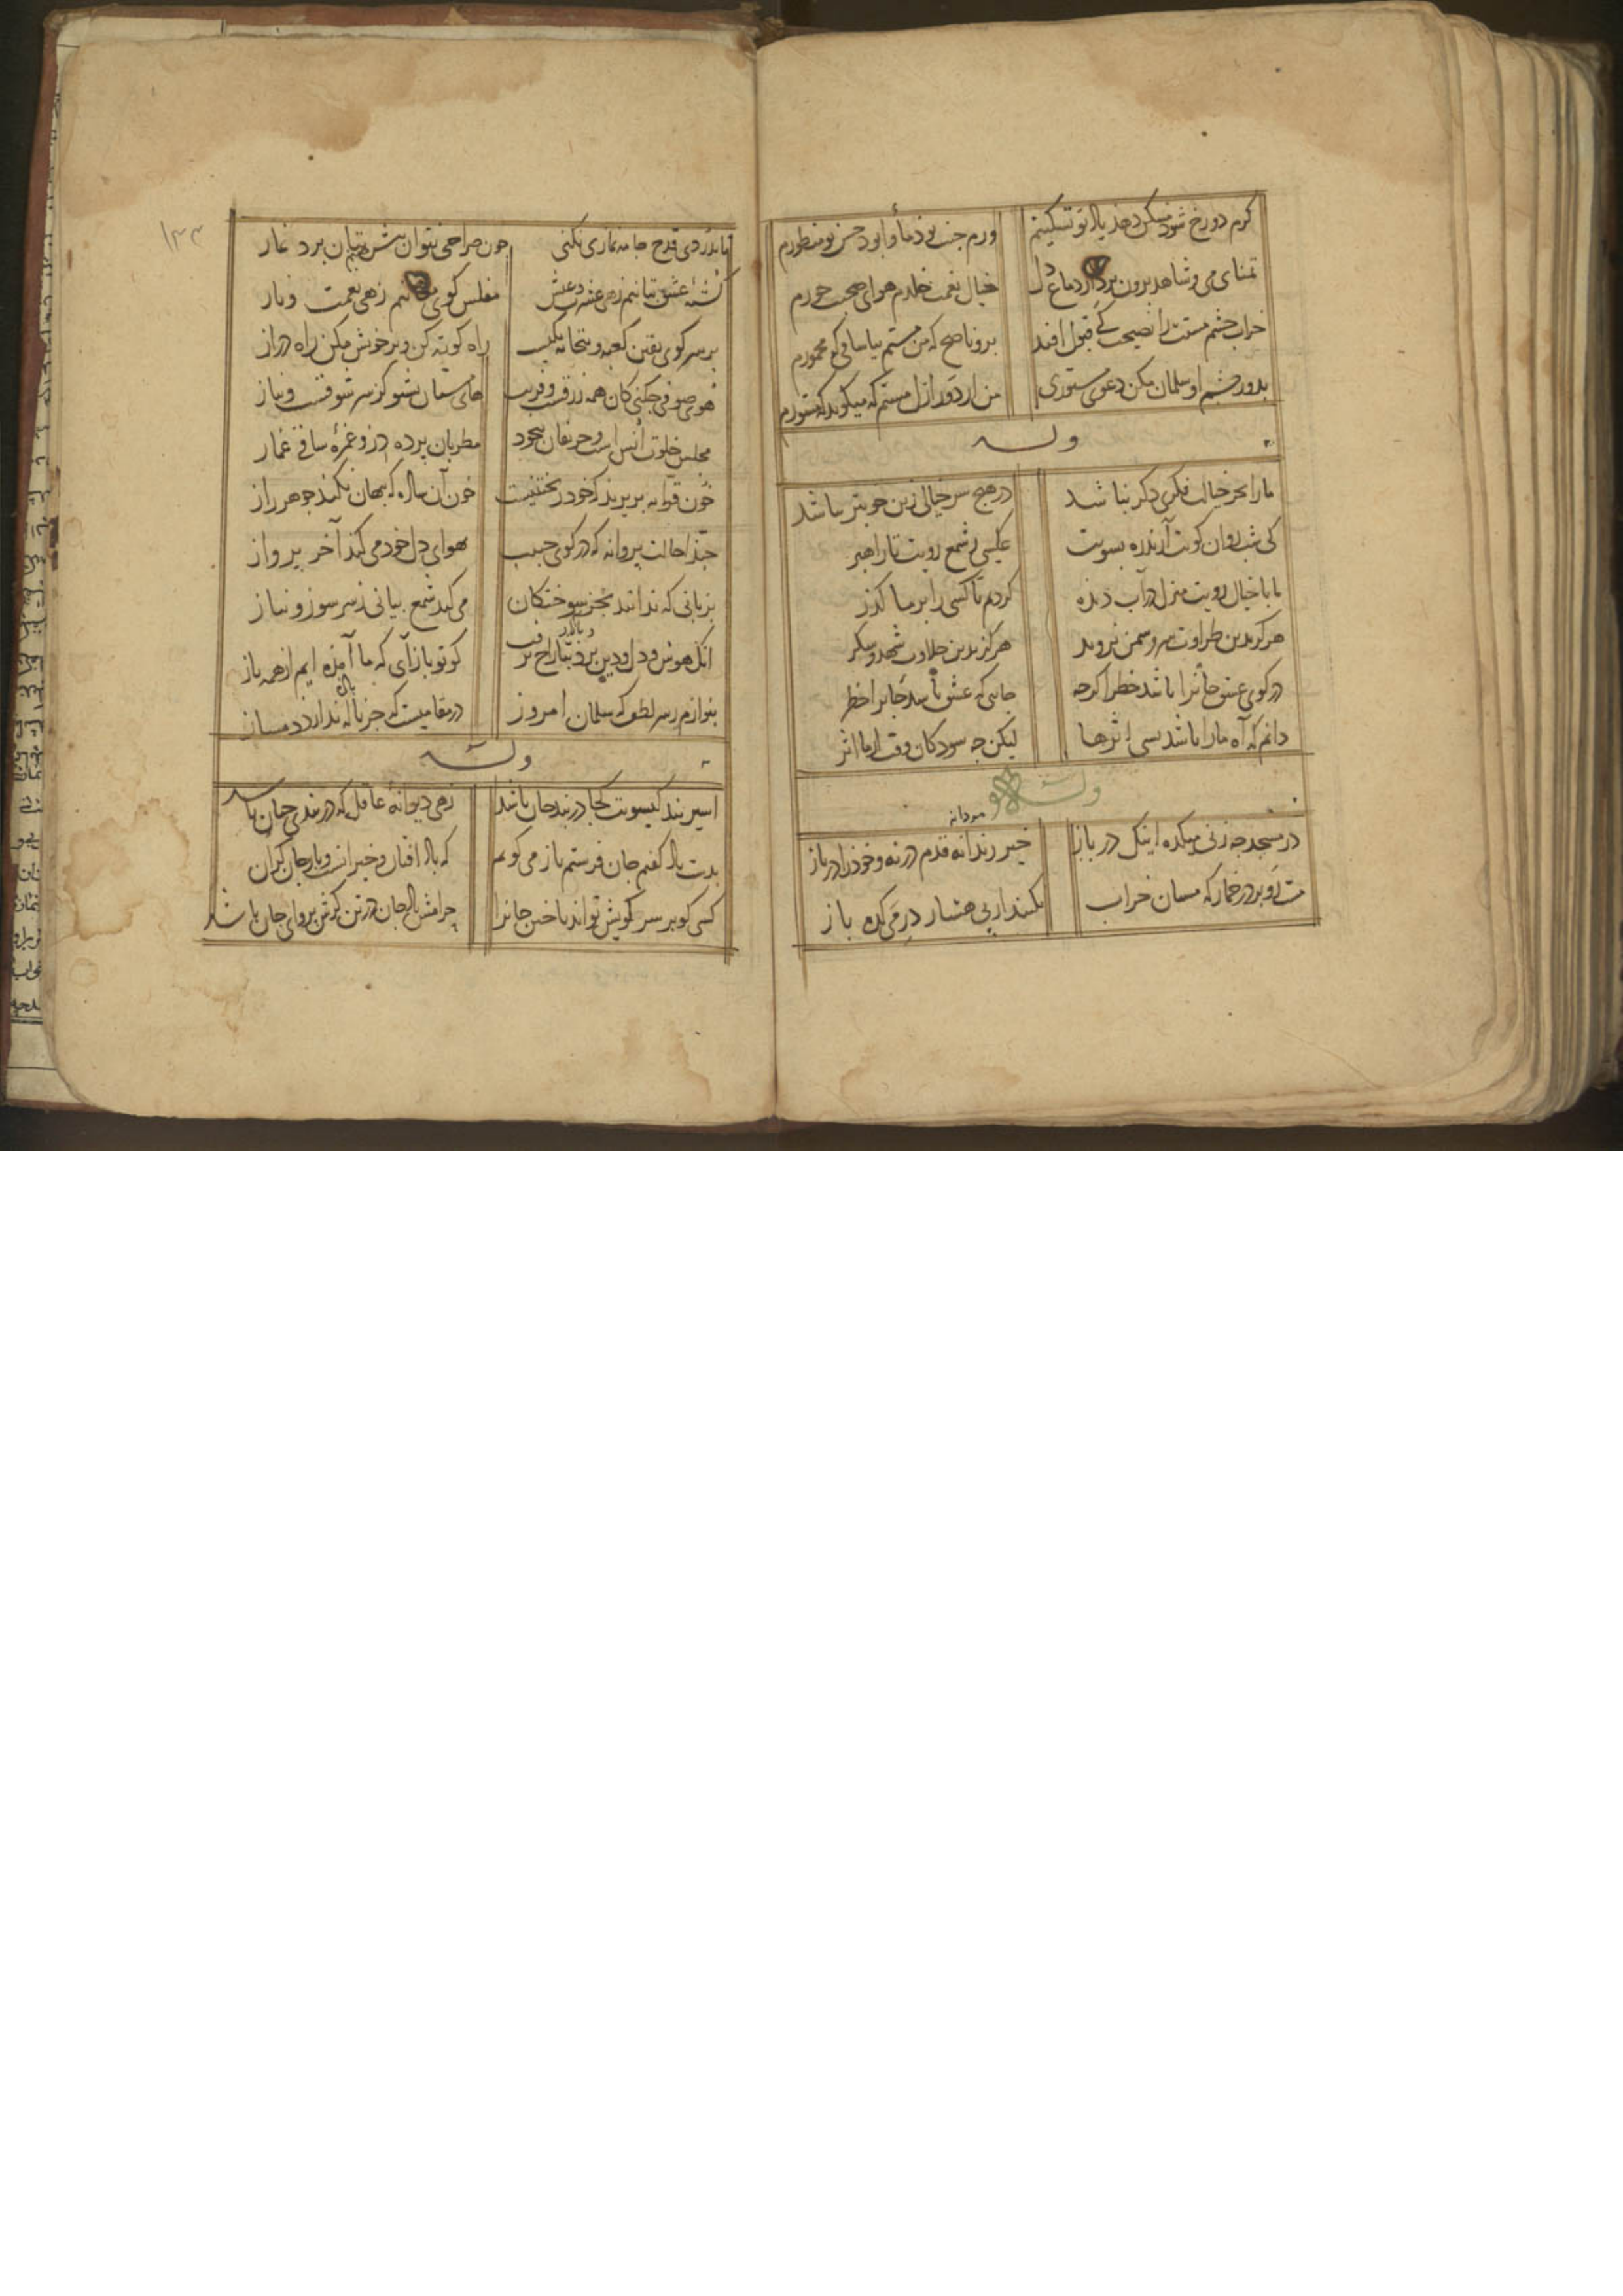 کرم دوزخ شود مسکن دهد یاد تو تسکینم
ورم جنت بود مأوا بود حسن تو منظورم
تمنای می و شاهد برون برد از دماغ دل
خیال نعمت خلدم هوای صحبت حورم
خراب چشم مستت را نصیحت کی قبول افتد
برو ناصح که من مستم بیا ساقی که مخمورم
بدور چشم او سلمان مکن دعوی مستوری
من از دور ازل مستم که میکوید که مستورم
وله
مارا بجز خیالت فکری دکر نباشد
در هیچ سر خیالی زین خوبتر نباشد
کی شب روان کویت آرند ره بسویت
عکسی ز شمع رویت تا راهبر
ما با خیال رویت منزل در آب دیده
کردیم تا کسی را بر ما کذر
هرکز بدین طراوت سرو و سمن نروید
هرکز بدین حلاوت شهد و شکر
در کوی عشق جانرا باشد خطر اکرچه
جایی که عشق باشد جانرا خطر
دانم که آه مارا باشد بسی اثرها
لیکن چه سود کان وقت از ما اثر
وله
مردانه
در مسجد چه زنی میکده اینک در باز
خیز رندانه قدم در نه و خود را در باز
مست رو بر در خمار که مستان خراب
نکنند از پی هشیار در میکده باز
۱۳۳
تا بدردی قدح جامه نمازی نکنی
چون صراحی نتوان پیش بتان برد نماز
کشته عشق بتانیم زهی عشرت و عیش
مفلس کوی مغانیم زهی نعمت و ناز
بر سر کوی یقین کعبه و بتخانه یکیست
راه کوته کن و بر خویش مکن راه دراز
هوی صوفی چکنی کان همه زرقست و فریب
های مستان بشنو کز سر شوقست و نیاز
مجلس خلوت انس است و حریفان بیخود
مطربان پرده در و غمزه ساقی غماز
خون قرابه بریزید که خود ریختنیست
خون آن ساده که پنهان نکند جوهر راز
حبذا حالت پروانه که در کوی حبیب
بهوای دل خود می کند آخر پرواز
بزبانی که ندانند بجز سوختکان
می کند شمع بیانی ز سر سوز و نیاز
انک هوش و دل و دین برد بتاراج
کو تو باز آی که ما آمده ایم از همه باز
بنوازم ز سر لطف که سلمان امروز
در مقامیست که جز ناله ندارد دمساز
وله
اسیر بند کیسویت کجا در بند جان باشد
زهی دیوانه عاقل که در بندی چنان باشد
بدست باد کفتم جان فرستم باز می کویم
که باد افتان و خیزانست و بار جان کران
کسی کو بر سر کویش تواند باختن جانرا
چرامش باد جان در تن کرش پروای جان باشد